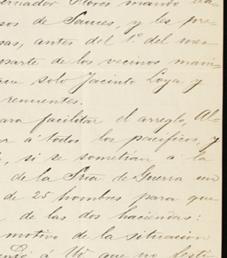 ernador Flores mandó ba-
sos de Sauces, y les pre-
sas, antes del 1.º del mes
parte de los vecinos mani-
solo Jacinto Loya y
renuentes.
para facilitar el arreglo,
r á todos los pacíficos, y
, si se sometían á la
de la Sria de Guerra un
de 25 hombres para que
de las dos haciendas:
motivo de la situacion
á Ud que no